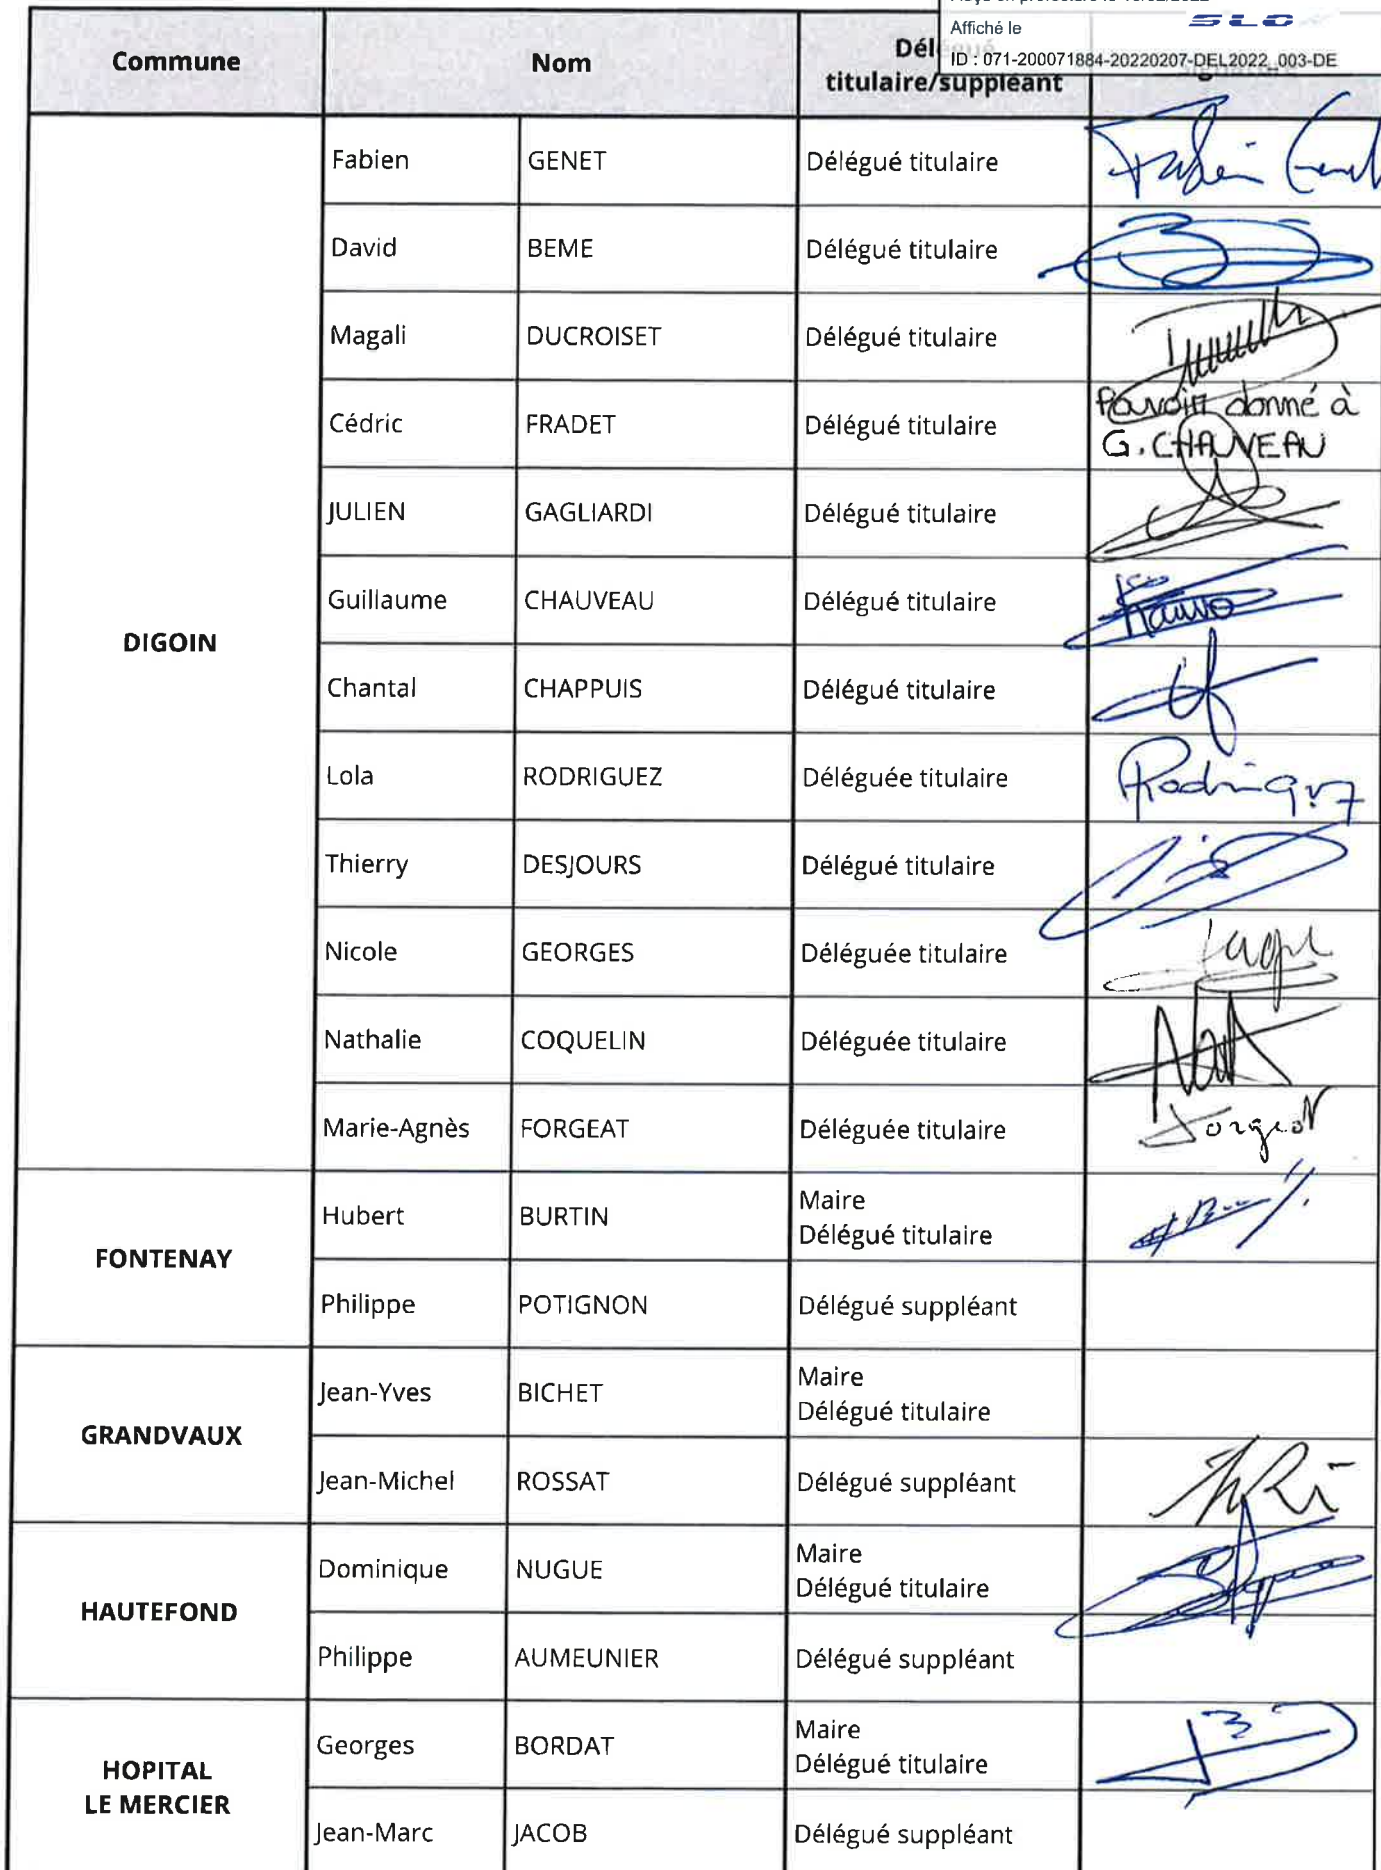 Affiché le
SLO
ID : 071-200071884-20220207-DEL2022_003-DE
Commune
Nom
titulaire/suppléant
DIGOIN
Fabien GENET Délégué titulaire Fabien Genet
David BEME Délégué titulaire
Magali DUCROISET Délégué titulaire
Cédric FRADET Délégué titulaire Pouvoir donné à
G. CHAUVEAU
JULIEN GAGLIARDI Délégué titulaire
Guillaume CHAUVEAU Délégué titulaire
Chantal CHAPPUIS Délégué titulaire
Lola RODRIGUEZ Déléguée titulaire Rodriguez
Thierry DESJOURS Délégué titulaire
Nicole GEORGES Déléguée titulaire
Nathalie COQUELIN Déléguée titulaire
Marie-Agnès FORGEAT Déléguée titulaire Forgeat
FONTENAY
Hubert BURTIN Maire
Délégué titulaire
Philippe POTIGNON Délégué suppléant
GRANDVAUX
Jean-Yves BICHET Maire
Délégué titulaire
Jean-Michel ROSSAT Délégué suppléant
HAUTEFOND
Dominique NUGUE Maire
Délégué titulaire
Philippe AUMEUNIER Délégué suppléant
HOPITAL
LE MERCIER
Georges BORDAT Maire
Délégué titulaire
Jean-Marc JACOB Délégué suppléant